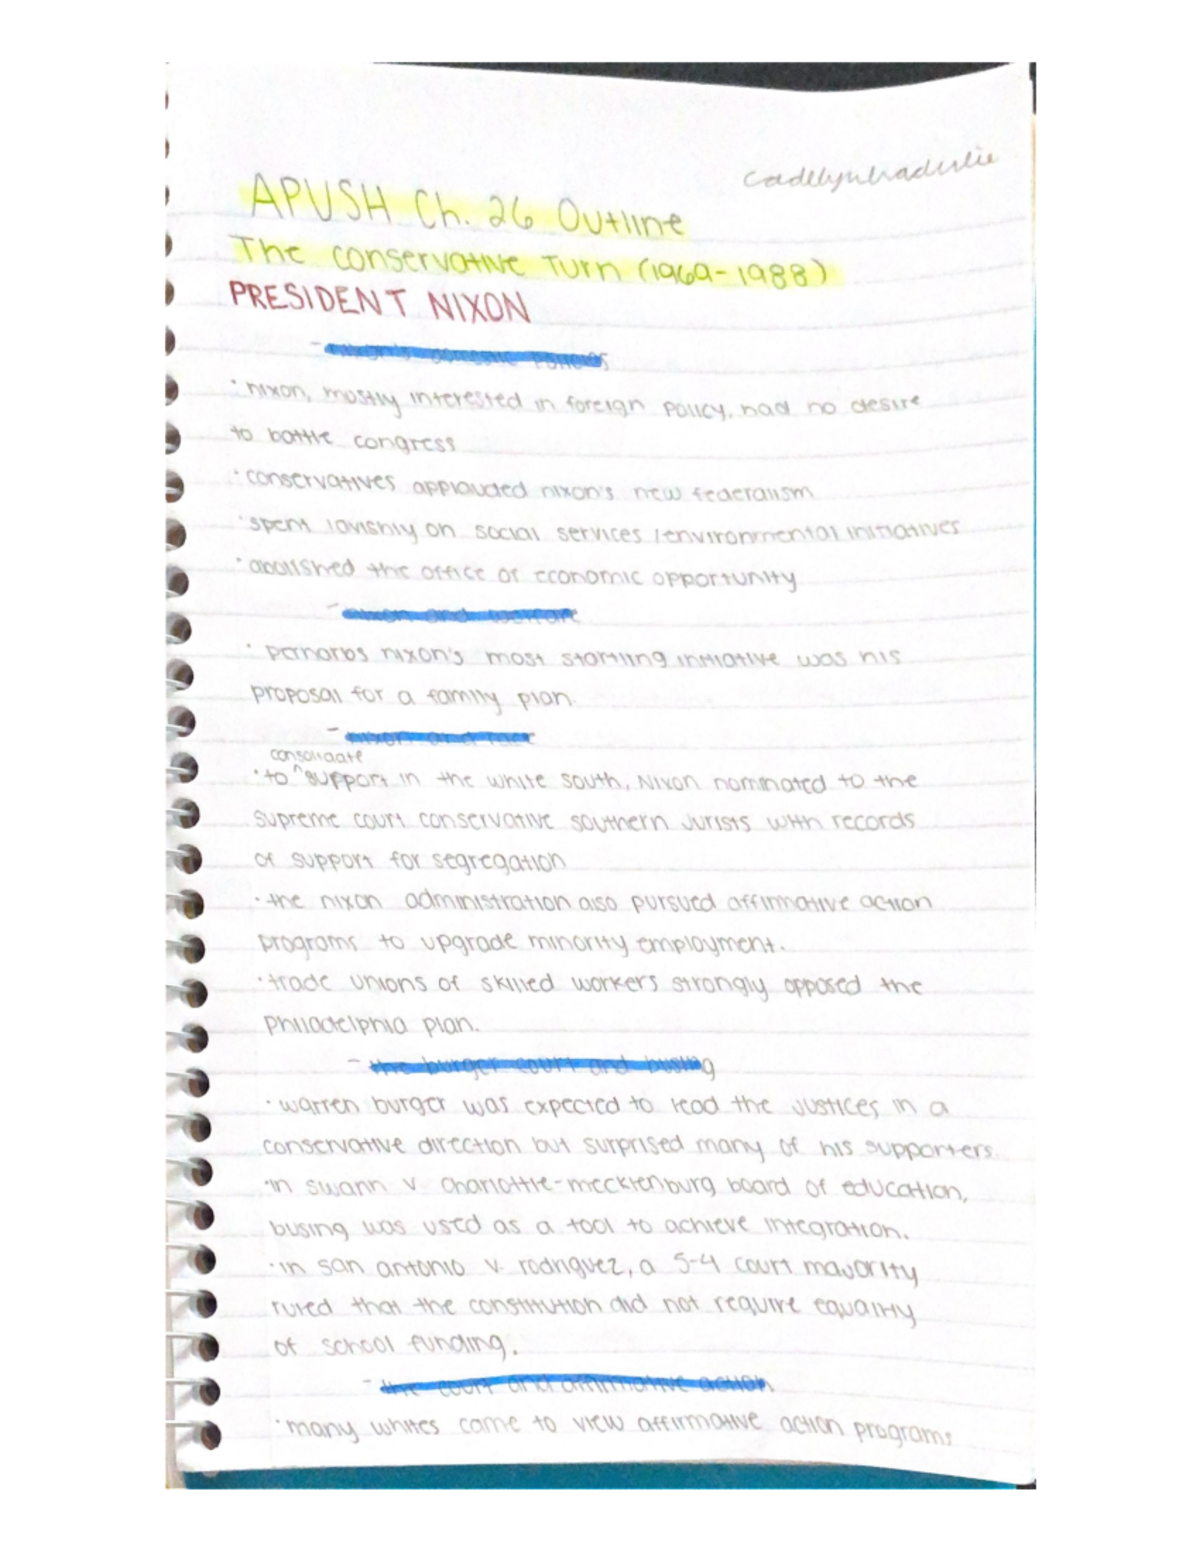 APUSH Ch. 26 Outline
The conservative Turn (1969-1988)
PRESIDENT NIXON
- nixon's domestic policies
· nixon, mostly interested in foreign policy, had no desire
to battle congress
· conservatives applauded nixon's new federalism
· spent lavishly on social services / environmental initiatives
· abolished the office of economic opportunity
- nixon and welfare
· perhaps nixon's most startling initiative was his
proposal for a family plan.
- nixon and race
consolidate
· to ^ support in the white south, Nixon nominated to the
supreme court conservative southern jurists with records
of support for segregation
· the nixon administration also pursued affirmative action
programs to upgrade minority employment.
· trade unions of skilled workers strongly opposed the
philadelphia plan.
- the burger court and busing
· warren burger was expected to lead the justices in a
conservative direction but surprised many of his supporters.
· in swann v. charlottle-mecklenburg board of education,
busing was used as a tool to achieve integration.
· in san antonio v. rodriguez, a 5-4 court majority
ruled that the constitution did not require equality
of school funding.
- the court and affirmative action
· many whites came to view affirmative action programs